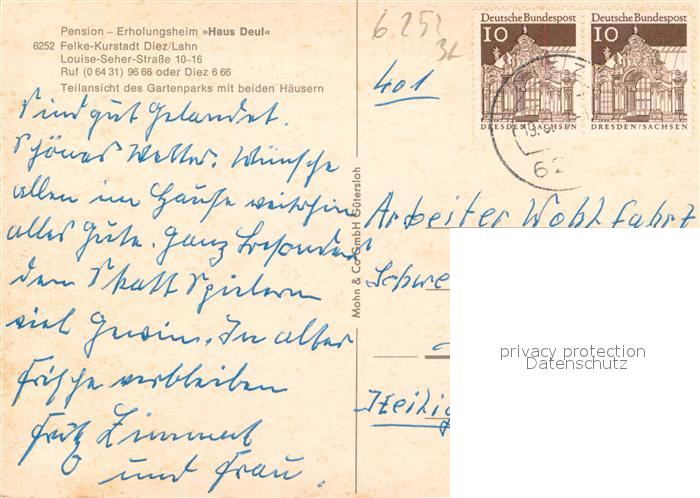 Pension – Erholungsheim »Haus Deul«
6252 Felke-Kurstadt Diez/Lahn
Louise-Seher-Straße 10-16
Ruf (0 64 31) 96 66 oder Diez 6 66
Teilansicht des Gartenparks mit beiden Häusern
Sind gut Gelandet.
Schönes Wetter. Wünsche
allen im Hause weiterhin
alles Gute. Ganz besonders
den Skatt Spielern
viel Gewinn. In alter
Frische verbleiben
Fritz Zimmat
und Frau.
Mohn & Co GmbH Gütersloh
6252
Deutsche Bundespost
10
DRESDEN/SACHSEN
Deutsche Bundespost
10
DRESDEN/SACHSEN
62
401
Arbeiter Wohlfahrt
Schwe
Heilig
privacy protection
Datenschutz